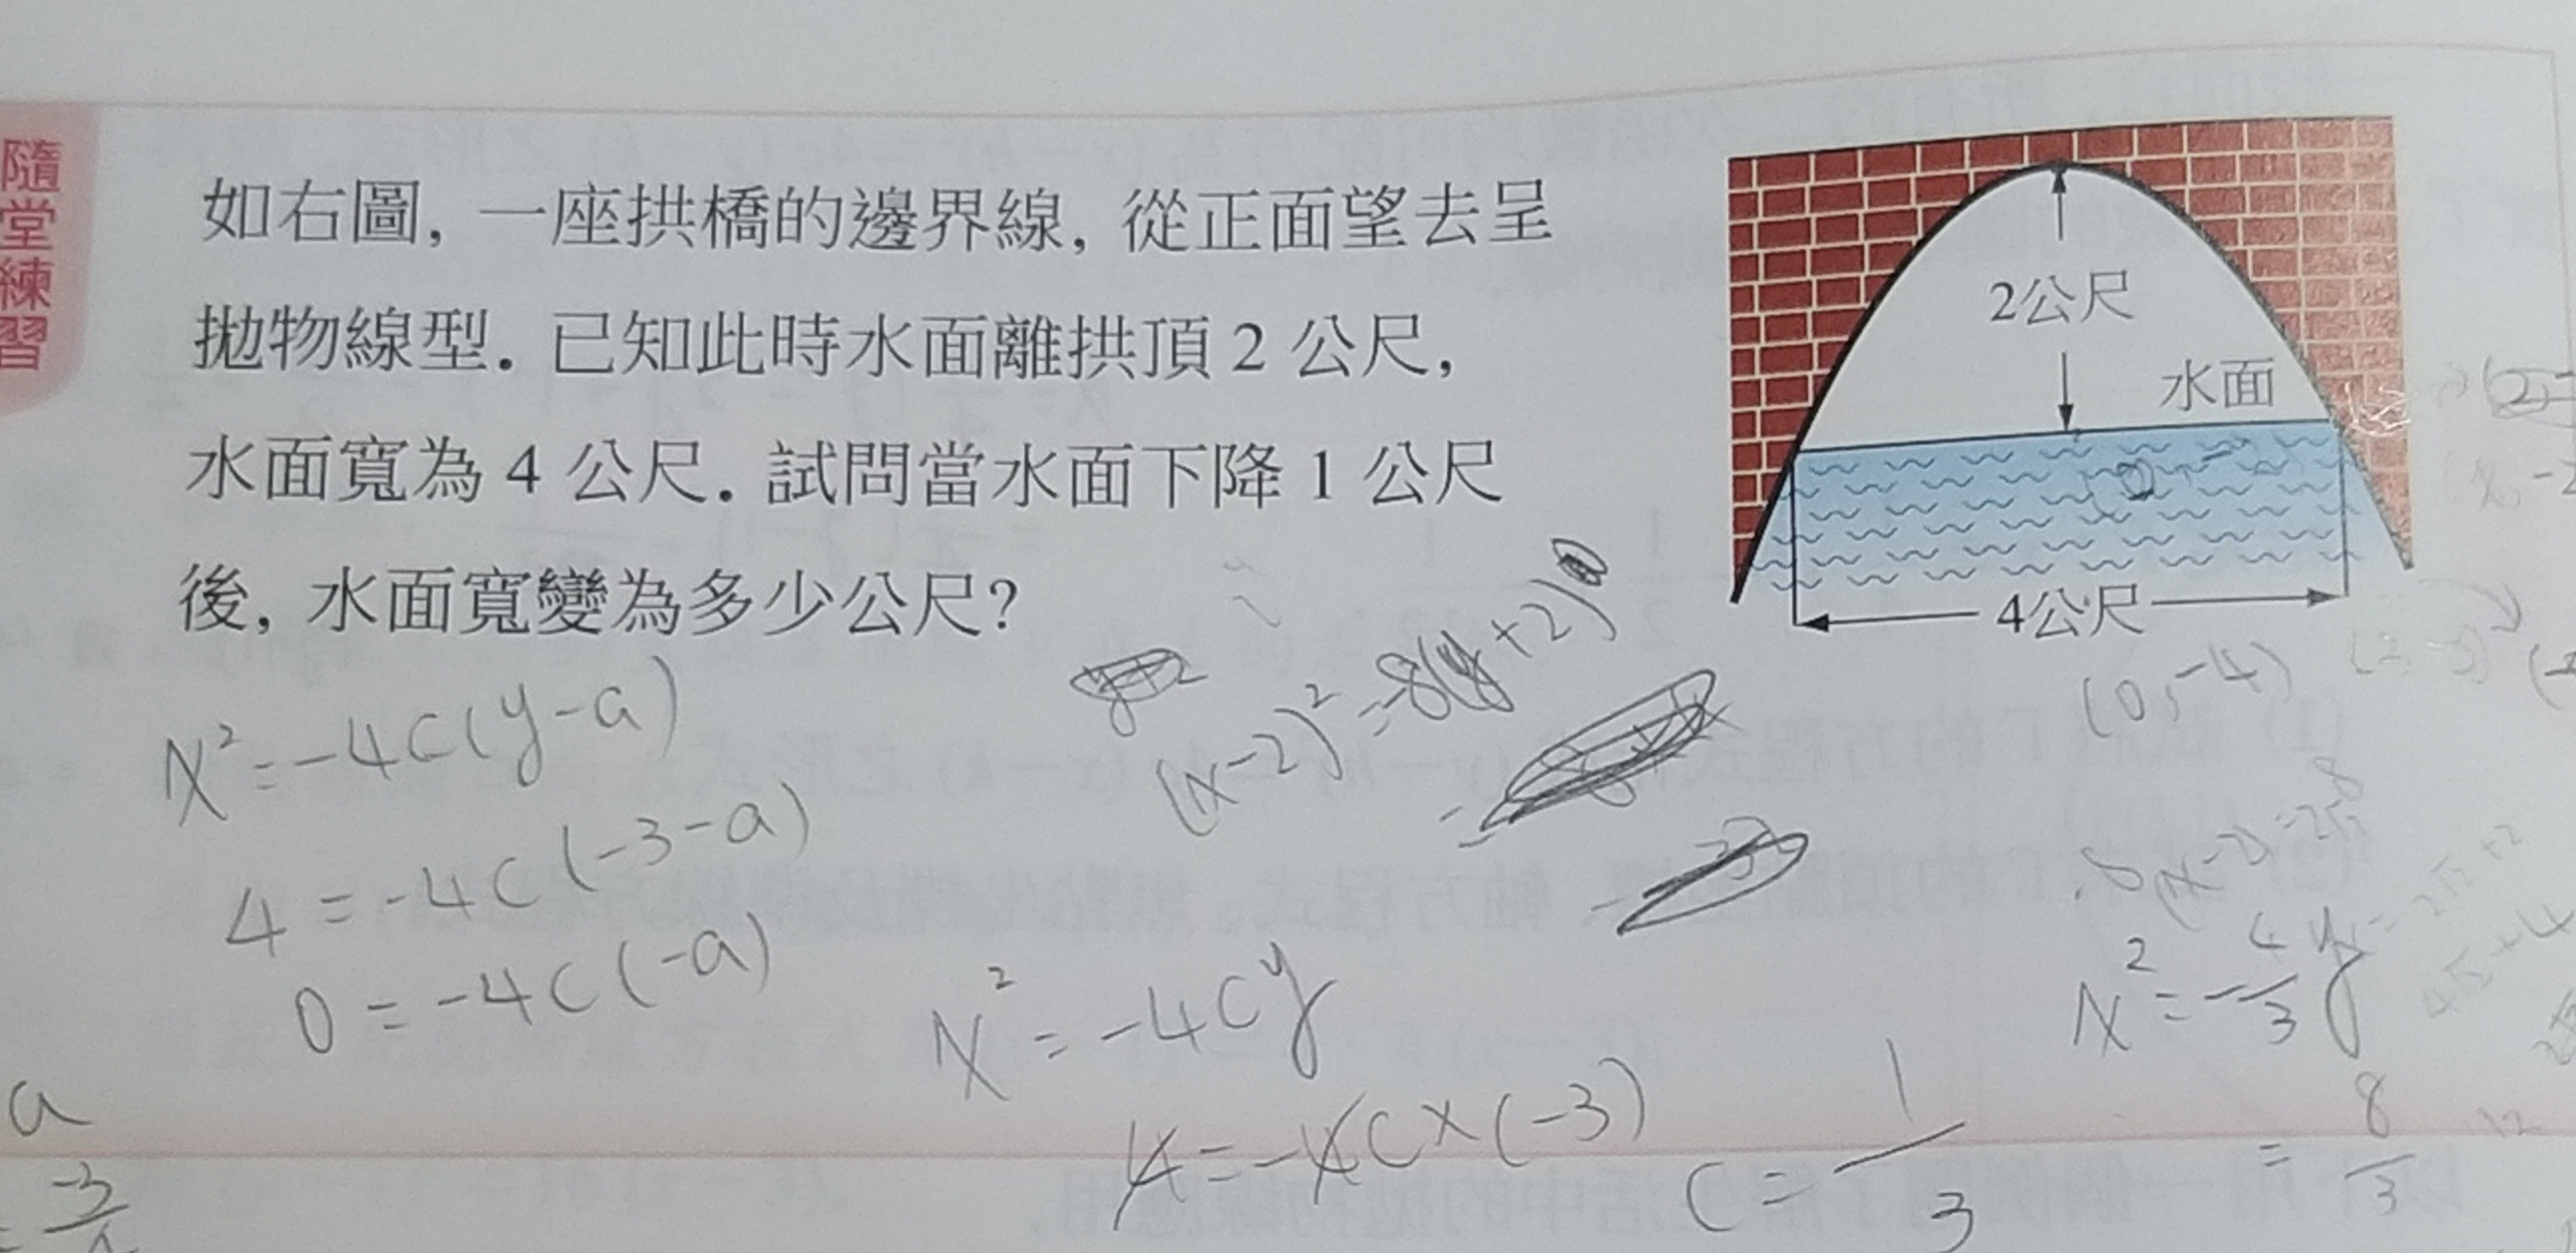 隨堂練習
如右圖, 一座拱橋的邊界線, 從正面望去呈
拋物線型. 已知此時水面離拱頂 2 公尺,
水面寬為 4 公尺. 試問當水面下降 1 公尺
後, 水面寬變為多少公尺?
2公尺
水面
4公尺
x²=-4c(y-a)
4=-4c(-3-a)
0=-4c(-a)
(x-2)²=-8(y+2)
(0,-4)
x²=-4cy
4=-4c×(-3)
c=1/3
x²=-4/3y
=8/3
a